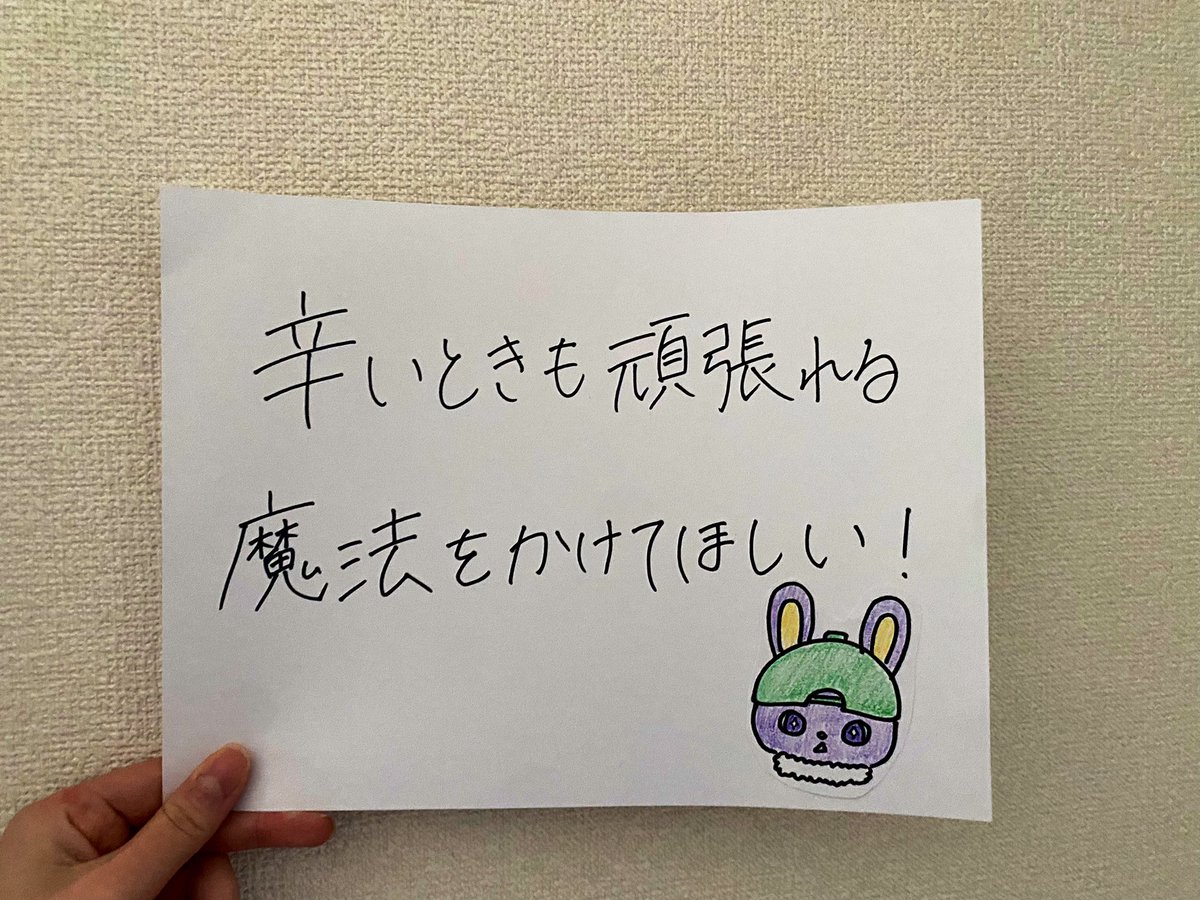 辛いときも頑張れる
魔法をかけてほしい！